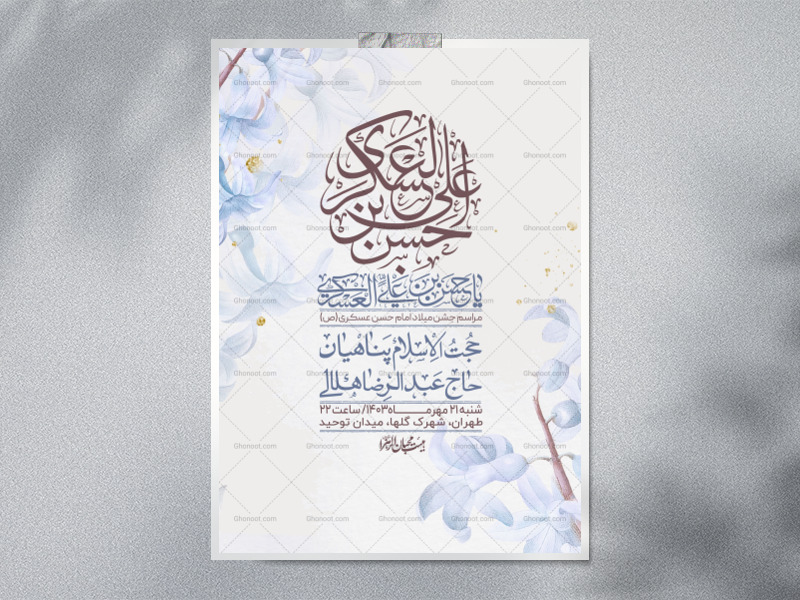 حسن بن علی العسکری
یا حسن بن علی العسکری
مراسم جشن میلاد امام حسن عسکری (ص)
حجت الاسلام پناهیان
حاج عبدالرضا هلالی
شنبه ۲۱ مهرمـاه ۱۴۰۳/ ساعت ۲۲
طهران، شهرک گلها، میدان توحید
Ghonoot.com